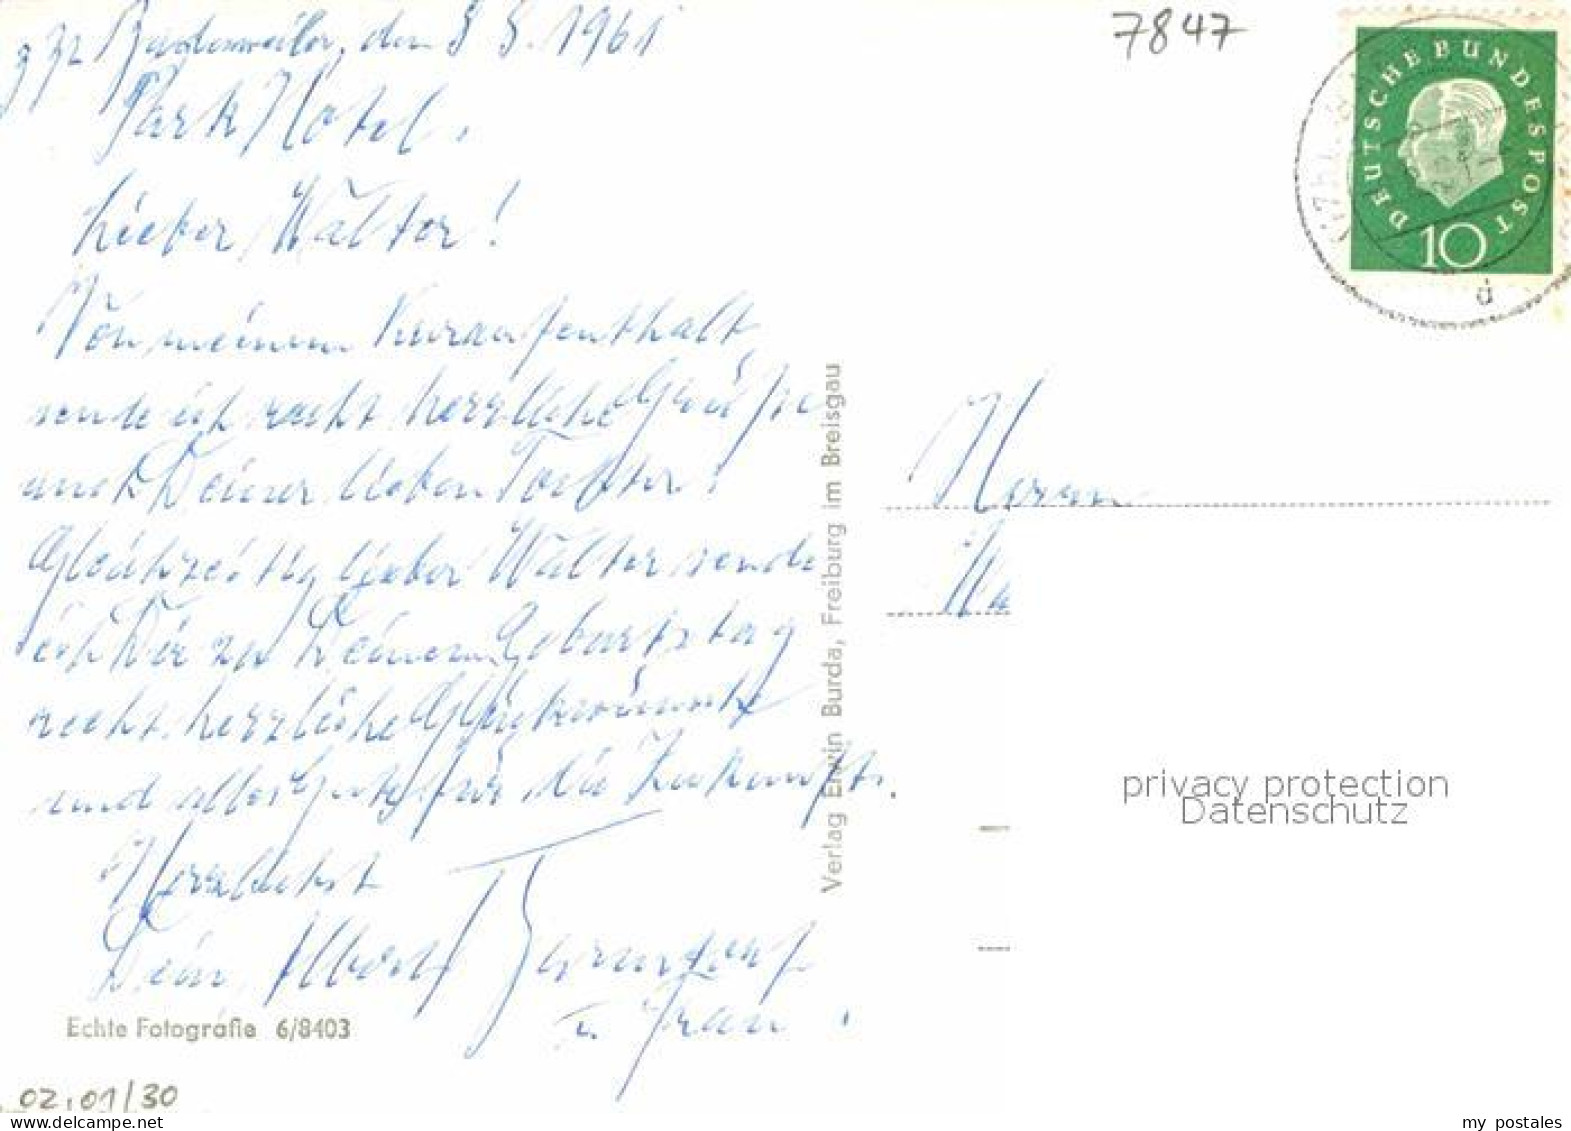 z. Zt. Badenweiler, den 8.8.1961
Park Hotel.
Lieber Walter!
Von meinem Kuraufenthalt
sende ich recht herzliche Grüße
auch Deiner lieben Tochter!
Gleichzeitig lieber Walter sende
ich Dir zu Deinem Geburtstag
recht herzliche Glückwünsche
und alles Gute für die Zukunft.
Herzlichst
Dein Albert
u. Frau.
Echte Fotografie 6/8403
02.01/30
Verlag Erwin Burda, Freiburg im Breisgau
7847
DEUTSCHE BUNDESPOST
10
d
Herrn
Wa
privacy protection
Datenschutz
my_postales